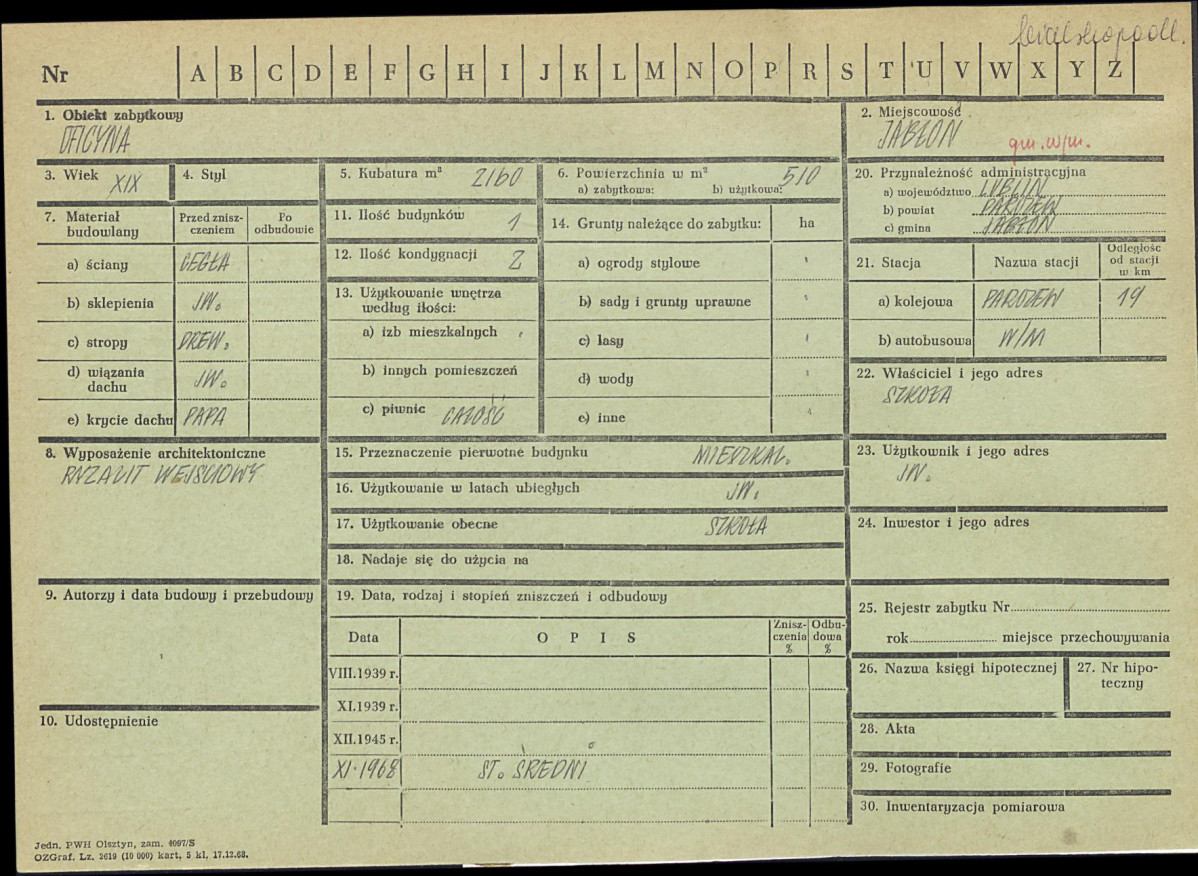 bialskopodl.
Nr A B C D E F G H I J K L M N O P R S T U V W X Y Z
1. Obiekt zabytkowy
OFICYNA
2. Miejscowość
JABŁOŃ
gm. w/m.
3. Wiek XIX
4. Styl
5. Kubatura m³ 2160
6. Powierzchnia w m² 510
a) zabytkowa: b) użytkowa:
20. Przynależność administracyjna
a) województwo LUBLIN
b) powiat PARCZEW
c) gmina JABŁOŃ
7. Materiał budowlany
Przed zniszczeniem
Po odbudowie
a) ściany CEGŁA
b) sklepienia JW.
c) stropy DREW.
d) wiązania dachu JW.
e) krycie dachu PAPA
11. Ilość budynków 1
12. Ilość kondygnacji 2
13. Użytkowanie wnętrza według ilości:
a) izb mieszkalnych
b) innych pomieszczeń
c) piwnic CAŁOŚĆ
14. Grunty należące do zabytku: ha
a) ogrody stylowe
b) sady i grunty uprawne
c) lasy
d) wody
e) inne
21. Stacja
Nazwa stacji
Odległość od stacji w km
a) kolejowa PARCZEW 19
b) autobusowa W/M
22. Właściciel i jego adres
SZKOŁA
8. Wyposażenie architektoniczne
RYZALIT WEJŚCIOWY
15. Przeznaczenie pierwotne budynku MIESZKAL.
16. Użytkowanie w latach ubiegłych JW.
17. Użytkowanie obecne SZKOŁA
18. Nadaje się do użycia na
23. Użytkownik i jego adres
JW.
24. Inwestor i jego adres
9. Autorzy i data budowy i przebudowy
10. Udostępnienie
19. Data, rodzaj i stopień zniszczeń i odbudowy
Data
OPIS
Zniszczenia %
Odbudowa %
VIII.1939 r.
XI.1939 r.
XII.1945 r.
XI.1968 ST. ŚREDNI
25. Rejestr zabytku Nr
rok miejsce przechowywania
26. Nazwa księgi hipotecznej
27. Nr hipoteczny
28. Akta
29. Fotografie
30. Inwentaryzacja pomiarowa
Jedn. PWH Olsztyn, zam. 4097/S
OZGraf. Lz. 2619 (10 000) kart, 5 kl, 17.12.68.